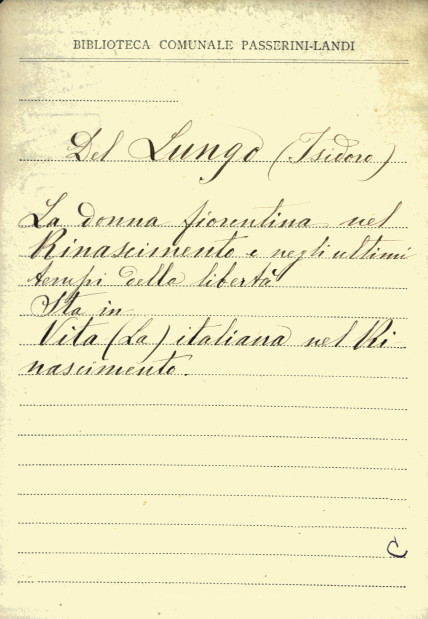 BIBLIOTECA COMUNALE PASSERINI-LANDI
Del Lungo (Isidoro)
La donna fiorentina nel
Rinascimento e negli ultimi
tempi della libertà
Sta in
Vita (La) italiana nel Ri-
nascimento.
C